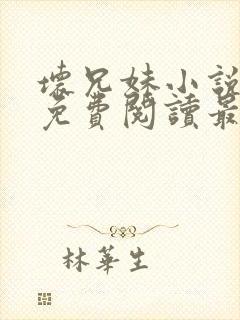 壞兄妹小說
免費閱讀最
林華生